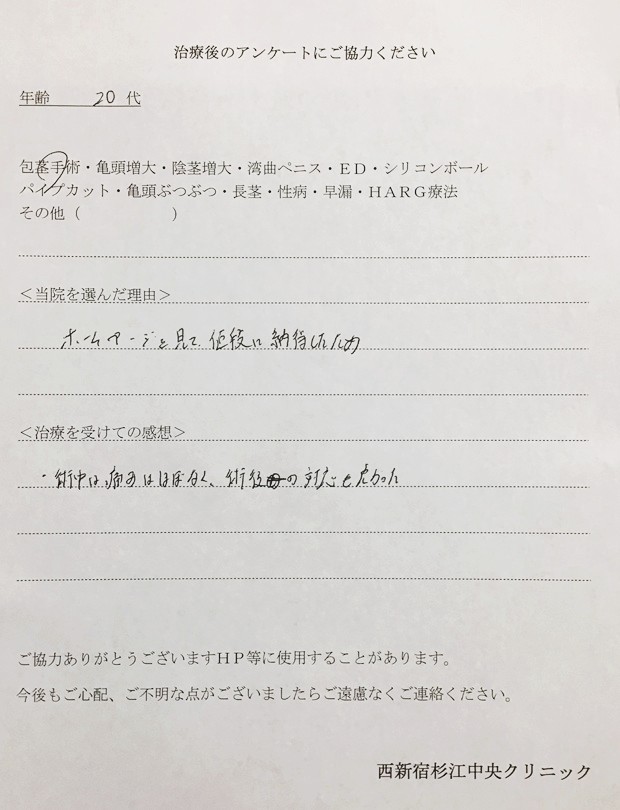 治療後のアンケートにご協力ください
年齢 20 代
包茎手術・亀頭増大・陰茎増大・湾曲ペニス・ED・シリコンボール
パイプカット・亀頭ぶつぶつ・長茎・性病・早漏・HARG療法
その他（ ）
＜当院を選んだ理由＞
ホームページを見て、値段に納得したため
＜治療を受けての感想＞
・術中は痛みはほぼなく、術後の対応も良かった
ご協力ありがとうございますHP等に使用することがあります。
今後もご心配、ご不明な点がございましたらご遠慮なくご連絡ください。
西新宿杉江中央クリニック